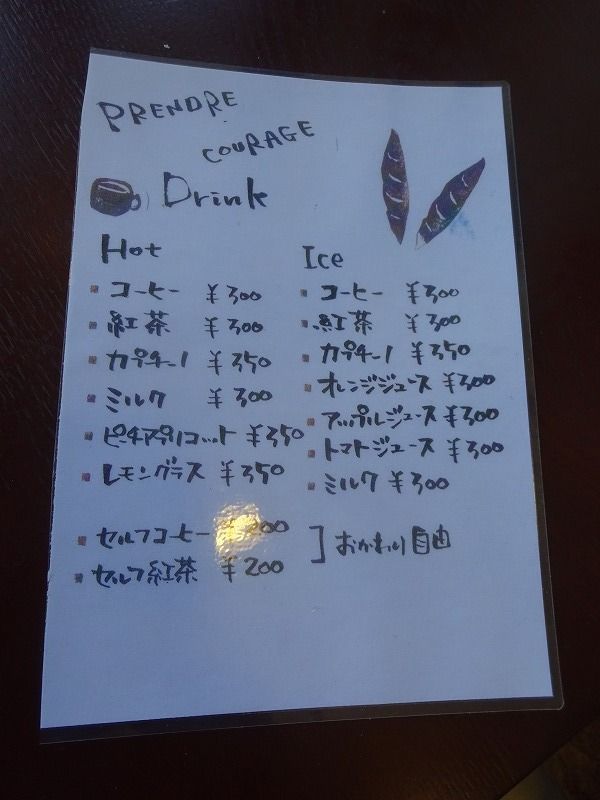 PRENDRE
COURAGE
Drink
Hot
コーヒー ¥300
紅茶 ¥300
カプチーノ ¥350
ミルク ¥300
ピーチアプリコット ¥350
レモングラス ¥350
セルフコーヒー ¥200
セルフ紅茶 ¥200
おかわり自由
Ice
コーヒー ¥300
紅茶 ¥300
カプチーノ ¥350
オレンジジュース ¥300
アップルジュース ¥300
トマトジュース ¥300
ミルク ¥300